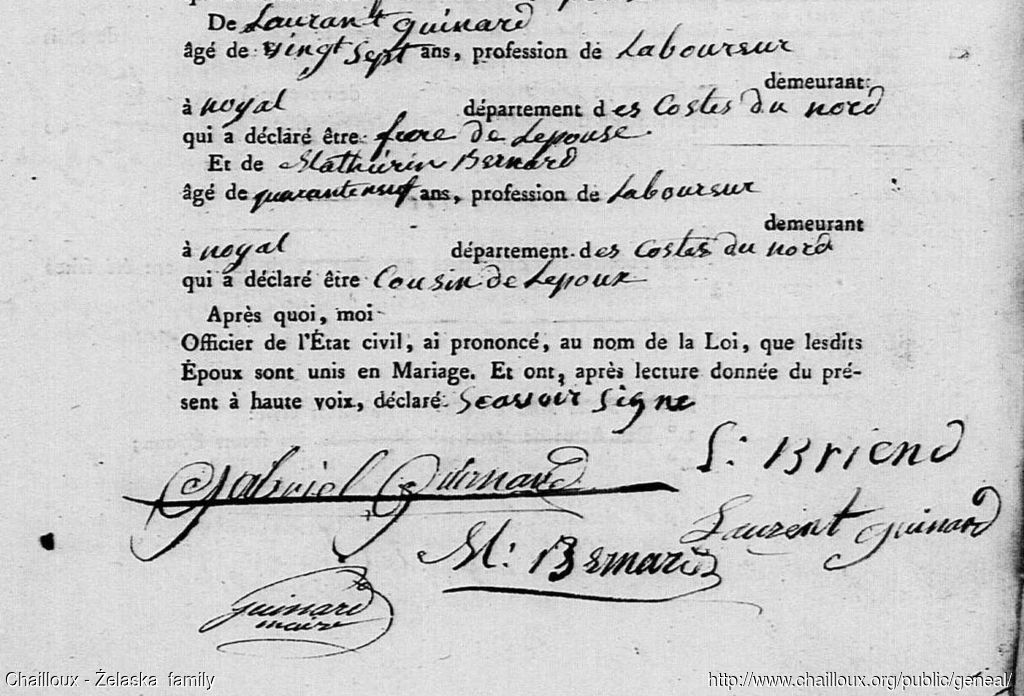 De Laurant guinard
âgé de vingt sept ans, profession de Laboureur
demeurant
à noyal département des Costes du nord
qui a déclaré être frere de Lepouse
Et de Mathurin Bernard
âgé de quaranteneuf ans, profession de Laboureur
demeurant
à noyal département des Costes du nord
qui a déclaré être Cousin de Lepoux
Après quoi, moi
Officier de l'État civil, ai prononcé, au nom de la Loi, que lesdits
Époux sont unis en Mariage. Et ont, après lecture donnée du pré-
sent à haute voix, déclaré Scavoir signe
S: Briend
Gabriel Guimard
Laurent guinard
M: Bernard
guinard
maire
Chailloux - Żelaska family
http://www.chailloux.org/public/geneal/